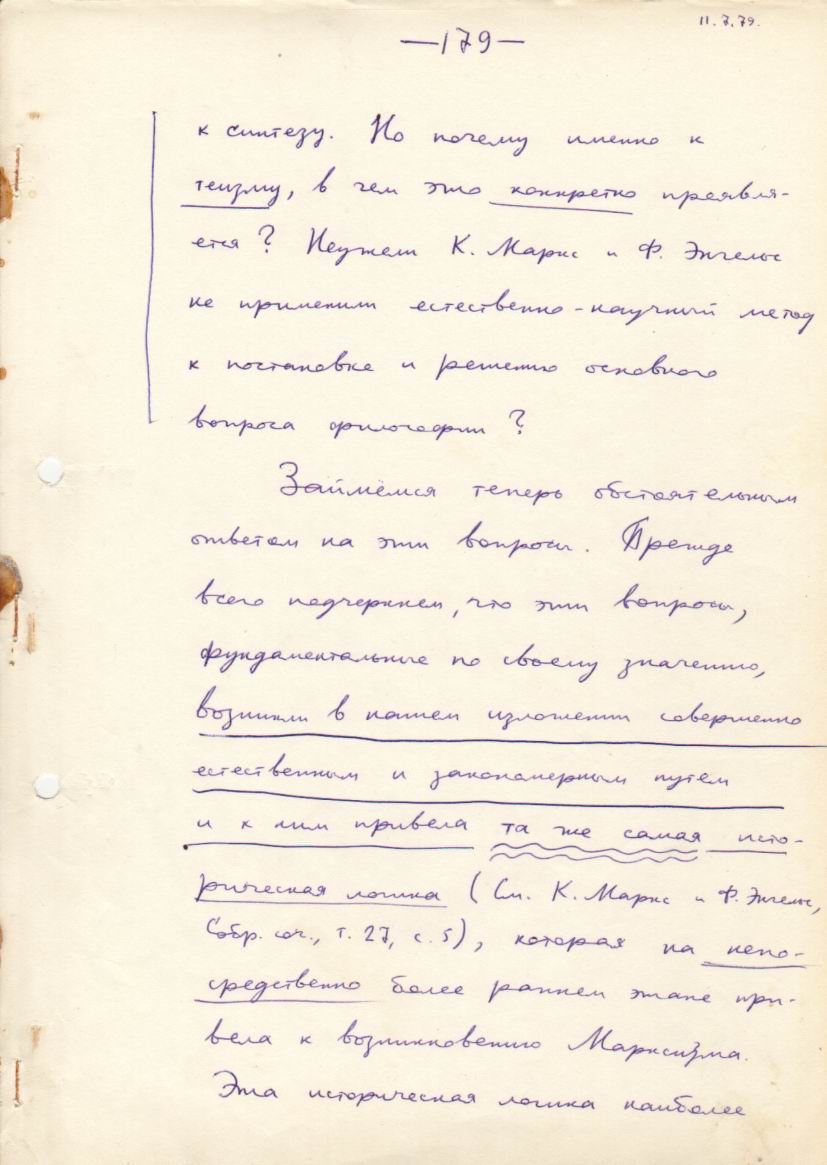 11.7.79.
—179—
к синтезу. Но почему именно к
теизму, в чем это конкретно проявля-
ется? Неужели К. Маркс и Ф. Энгельс
не применили естественно-научный метод
к постановке и решению основного
вопроса философии?
Займёмся теперь обстоятельным
ответом на эти вопросы. Прежде
всего подчеркнем, что эти вопросы,
фундаментальные по своему значению,
возникли в нашем изложении совершенно
естественным и закономерным путем
и к ним привела та же самая исто-
рическая логика (См. К. Маркс и Ф. Энгельс,
Собр. соч., т. 27, с. 5), которая на непо-
средственно более раннем этапе при-
вела к возникновению Марксизма.
Эта историческая логика наиболее